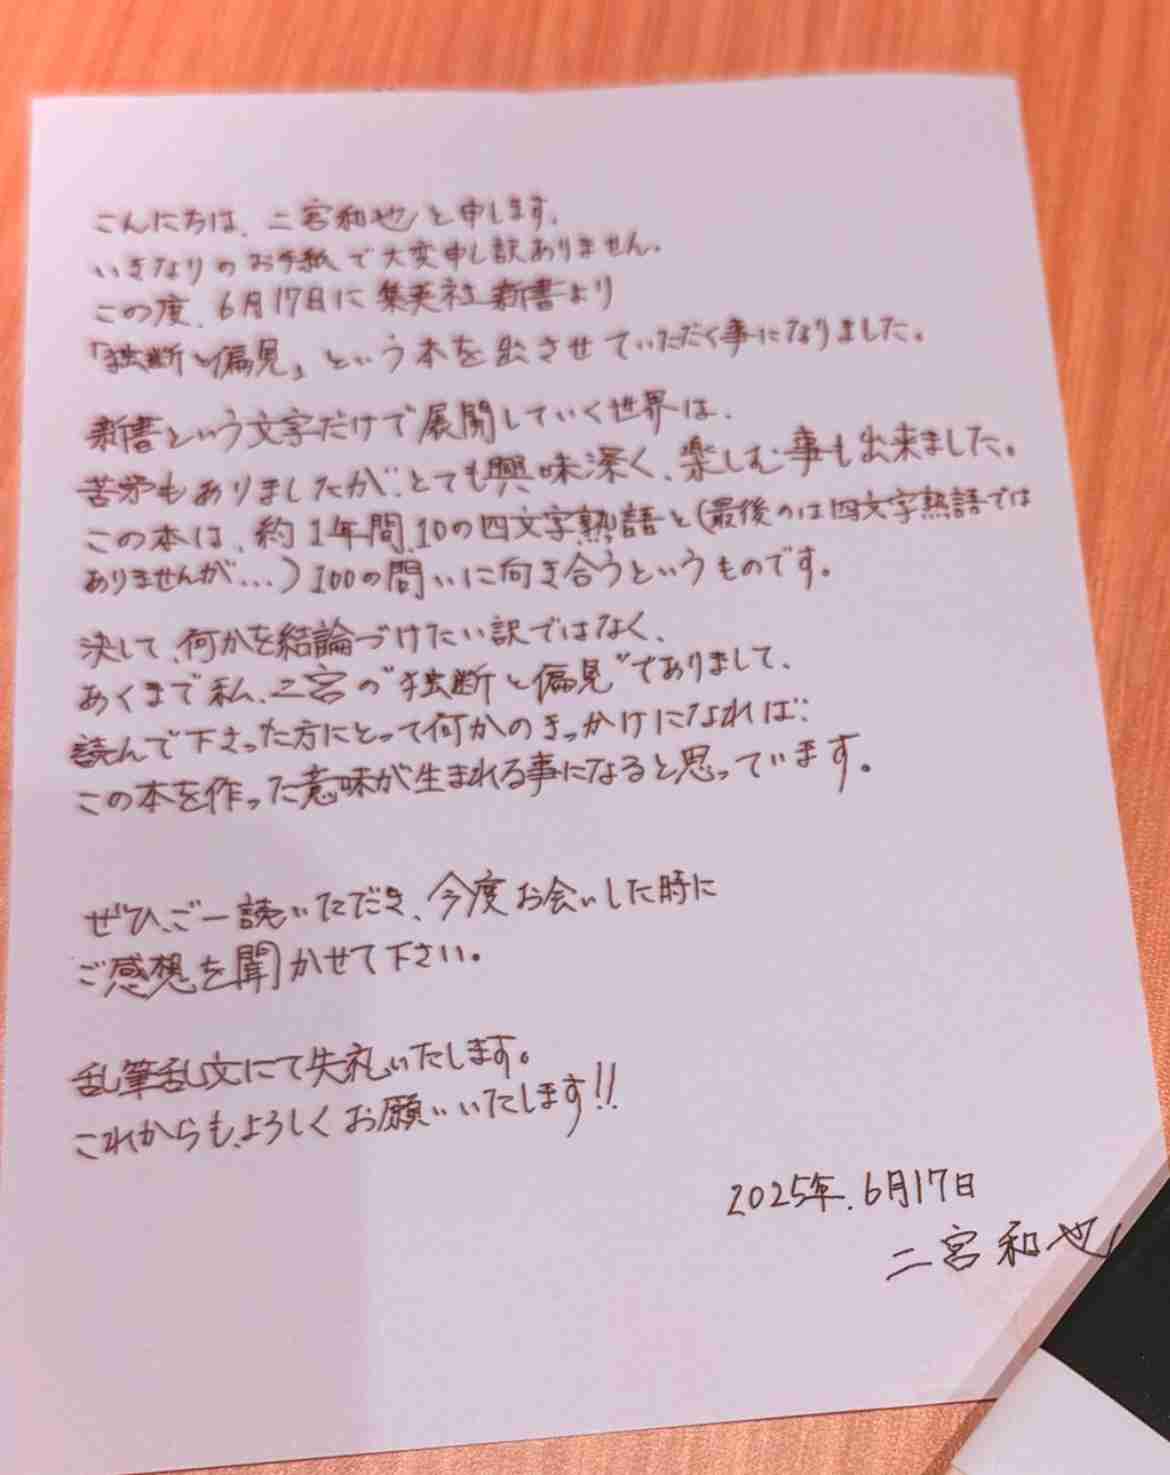 こんにちは、二宮和也と申します。
いきなりのお手紙で大変申し訳ありません。
この度、6月17日に集英社新書より
「独断と偏見」という本を出させていただく事になりました。
新書という文字だけで展開していく世界は、
苦労もありましたが、とても興味深く、楽しむ事も出来ました。
この本は、約1年間、10の四文字熟語と(最後のは四文字熟語では
ありませんが…)100の問いに向き合うというものです。
決して、何かを結論づけたい訳ではなく、
あくまで私、二宮の〝独断と偏見〟でありまして、
読んで下さった方にとって何かのきっかけになれば、
この本を作った意味が生まれる事になると思っています。
ぜひ、ご一読いただき、今度お会いした時に
ご感想を聞かせて下さい。
乱筆乱文にて失礼いたします。
これからも、よろしくお願いいたします!!
2025年.6月17日
二宮和也